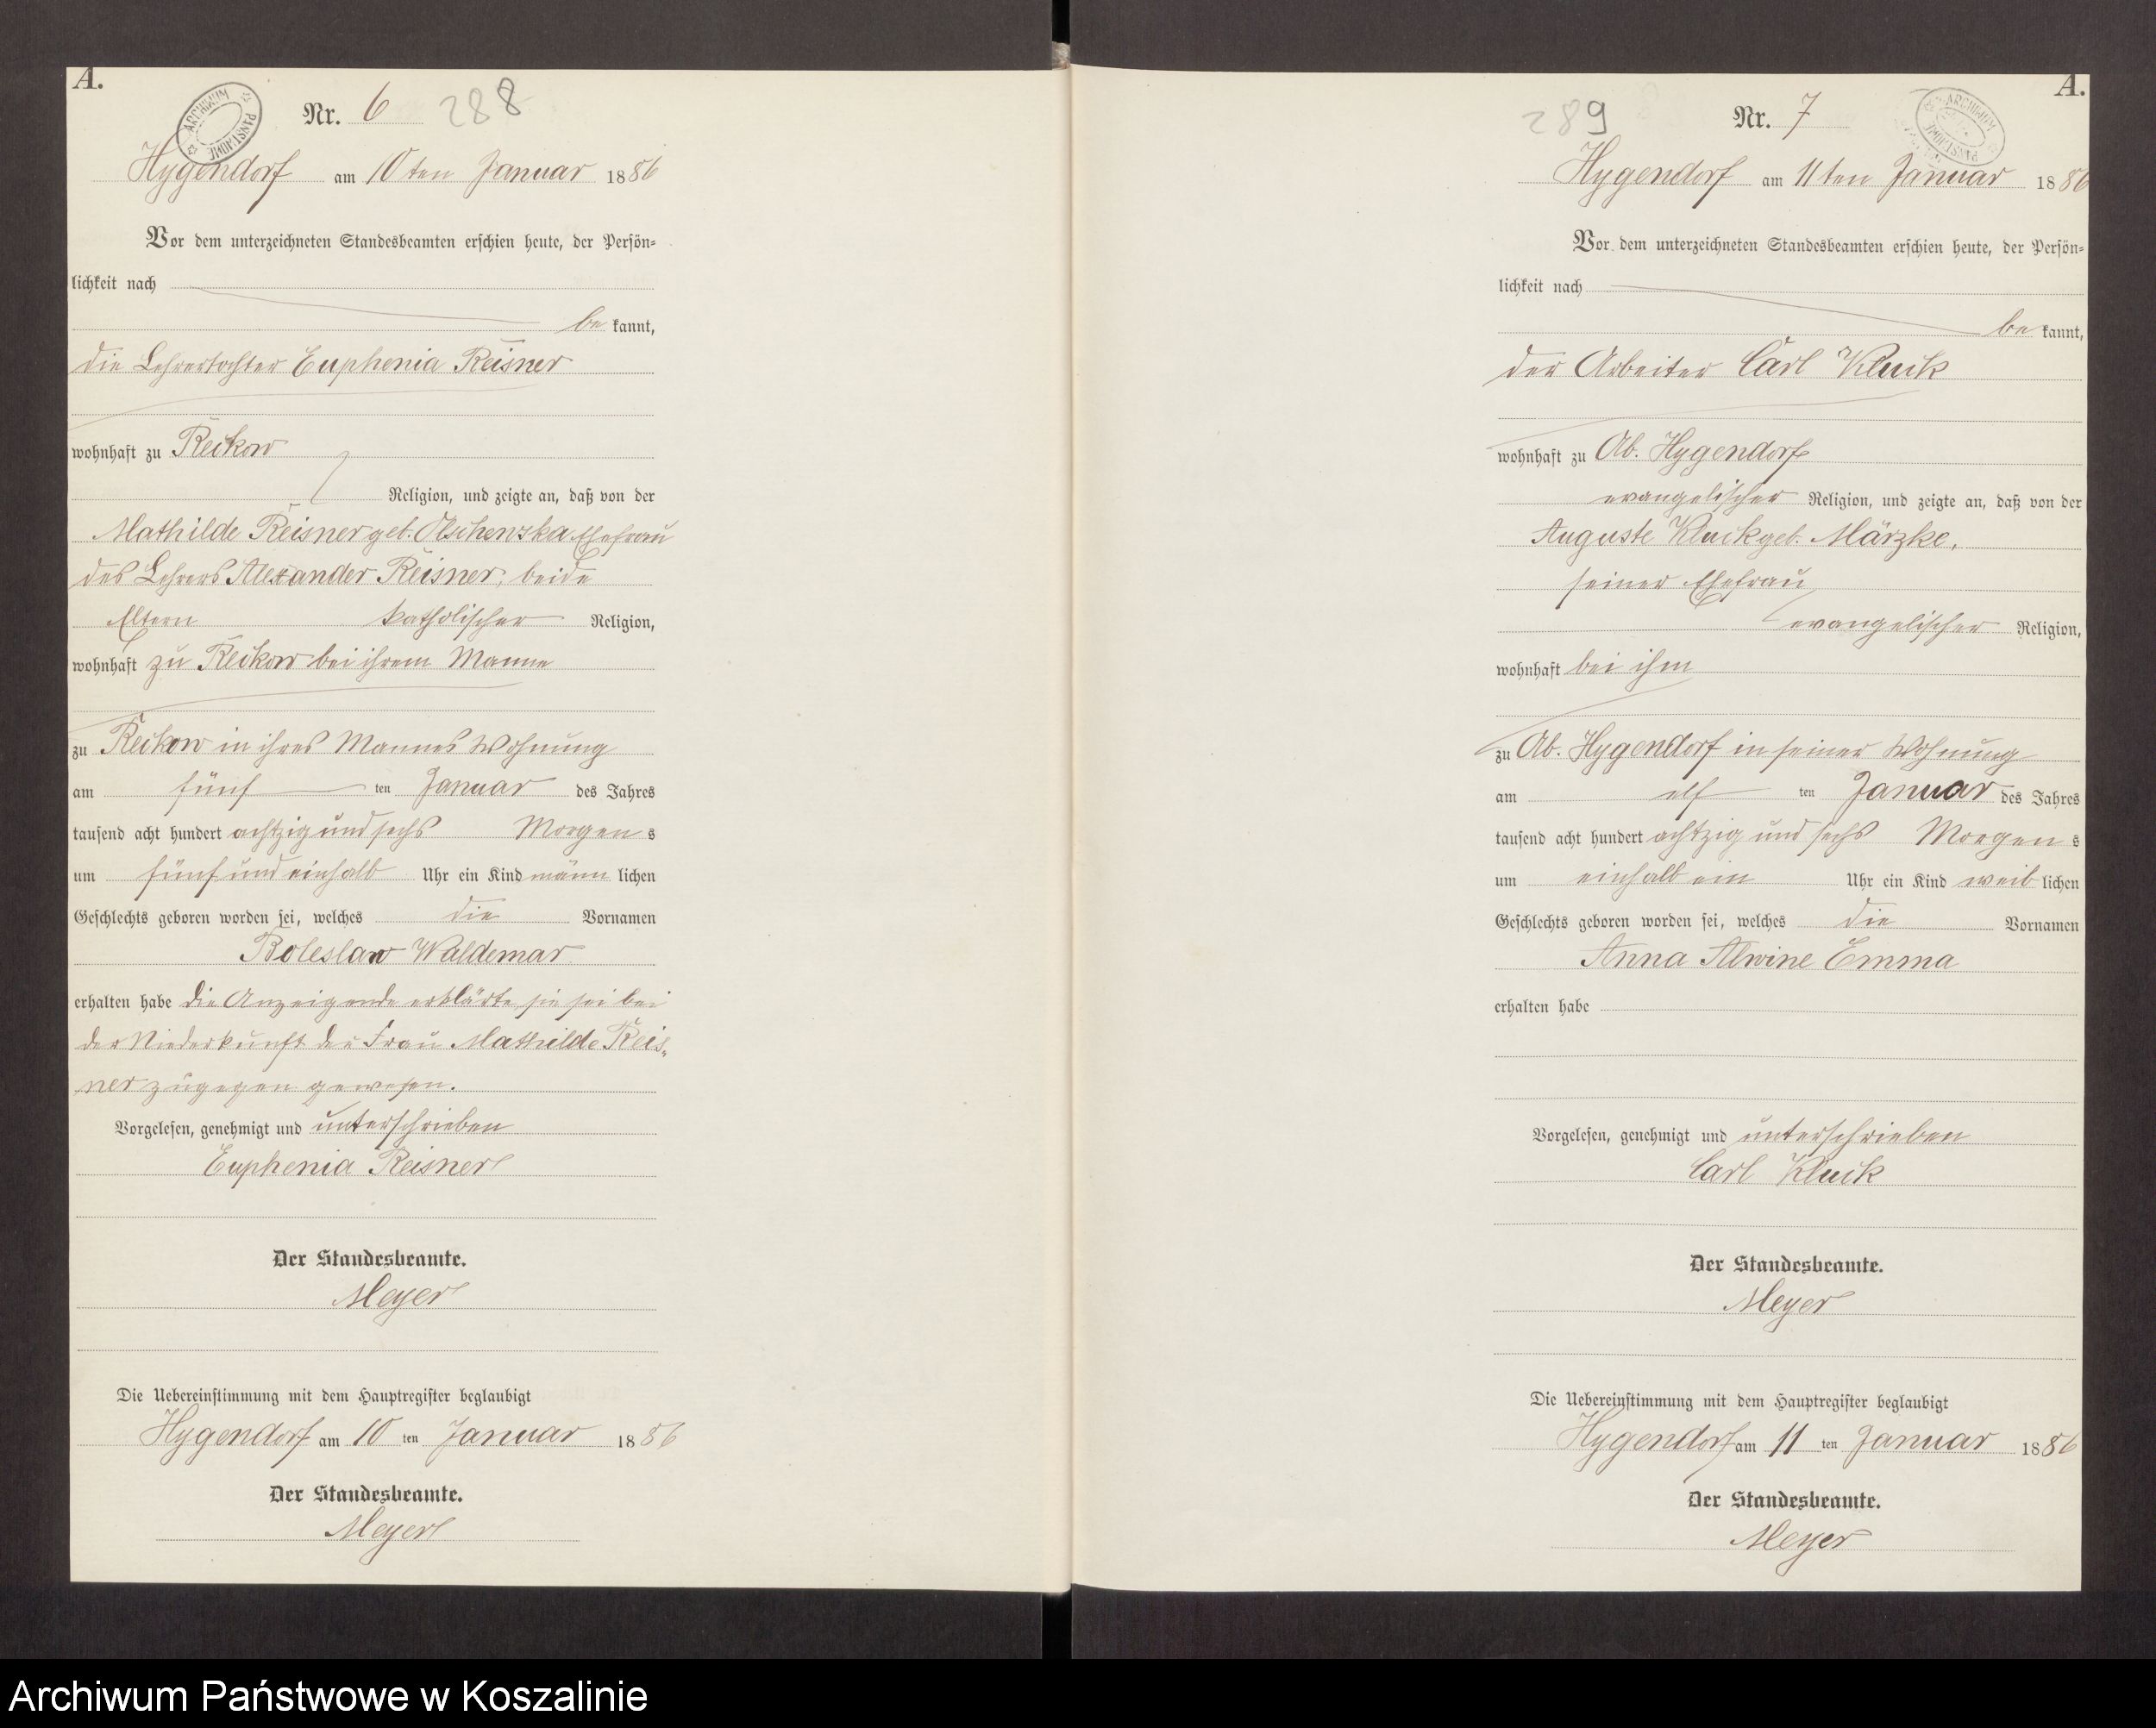 A.
ARCHIWUM PAŃSTWOWE
Nr. 6 288
Hygendorf am 10ten Januar 1886
Vor dem unterzeichneten Standesbeamten erschien heute, der Persön-
lichkeit nach
be kannt,
die Lehrertochter Euphenia Reisner
wohnhaft zu Reckow
Religion, und zeigte an, daß von der
Mathilde Reisner geb. Olschewska Ehefrau
des Lehrers Alexander Reisner, beide
Eltern katholischer Religion,
wohnhaft zu Reckow bei ihrem Manne
zu Reckow in ihres Mannes Wohnung
am fünf ten Januar des Jahres
tausend acht hundert achtzig und sechs Morgen s
um fünf und einhalb Uhr ein Kind männ lichen
Geschlechts geboren worden sei, welches die Vornamen
Boleslaw Waldemar
erhalten habe die Anzeigende erklärte, sie sei bei
der Niederkunft der Frau Mathilde Reis-
ner zugegen gewesen.
Vorgelesen, genehmigt und unterschrieben
Euphenia Reisner
Der Standesbeamte.
Meyer
Die Uebereinstimmung mit dem Hauptregister beglaubigt
Hygendorf am 10 ten Januar 1886
Der Standesbeamte.
Meyer
A.
ARCHIWUM PAŃSTWOWE
289 Nr. 7
Hygendorf am 11ten Januar 1886
Vor dem unterzeichneten Standesbeamten erschien heute, der Persön-
lichkeit nach
be kannt,
der Arbeiter Carl Kluck
wohnhaft zu Ab. Hygendorf
evangelischer Religion, und zeigte an, daß von der
Auguste Kluck geb. Märzke,
seiner Ehefrau
evangelischer Religion,
wohnhaft bei ihm
zu Ab. Hygendorf in seiner Wohnung
am elf ten Januar des Jahres
tausend acht hundert achtzig und sechs Morgen s
um einhalb ein Uhr ein Kind weib lichen
Geschlechts geboren worden sei, welches die Vornamen
Anna Alwine Emma
erhalten habe
Vorgelesen, genehmigt und unterschrieben
Carl Kluck
Der Standesbeamte.
Meyer
Die Uebereinstimmung mit dem Hauptregister beglaubigt
Hygendorf am 11 ten Januar 1886
Der Standesbeamte.
Meyer
Archiwum Państwowe w Koszalinie